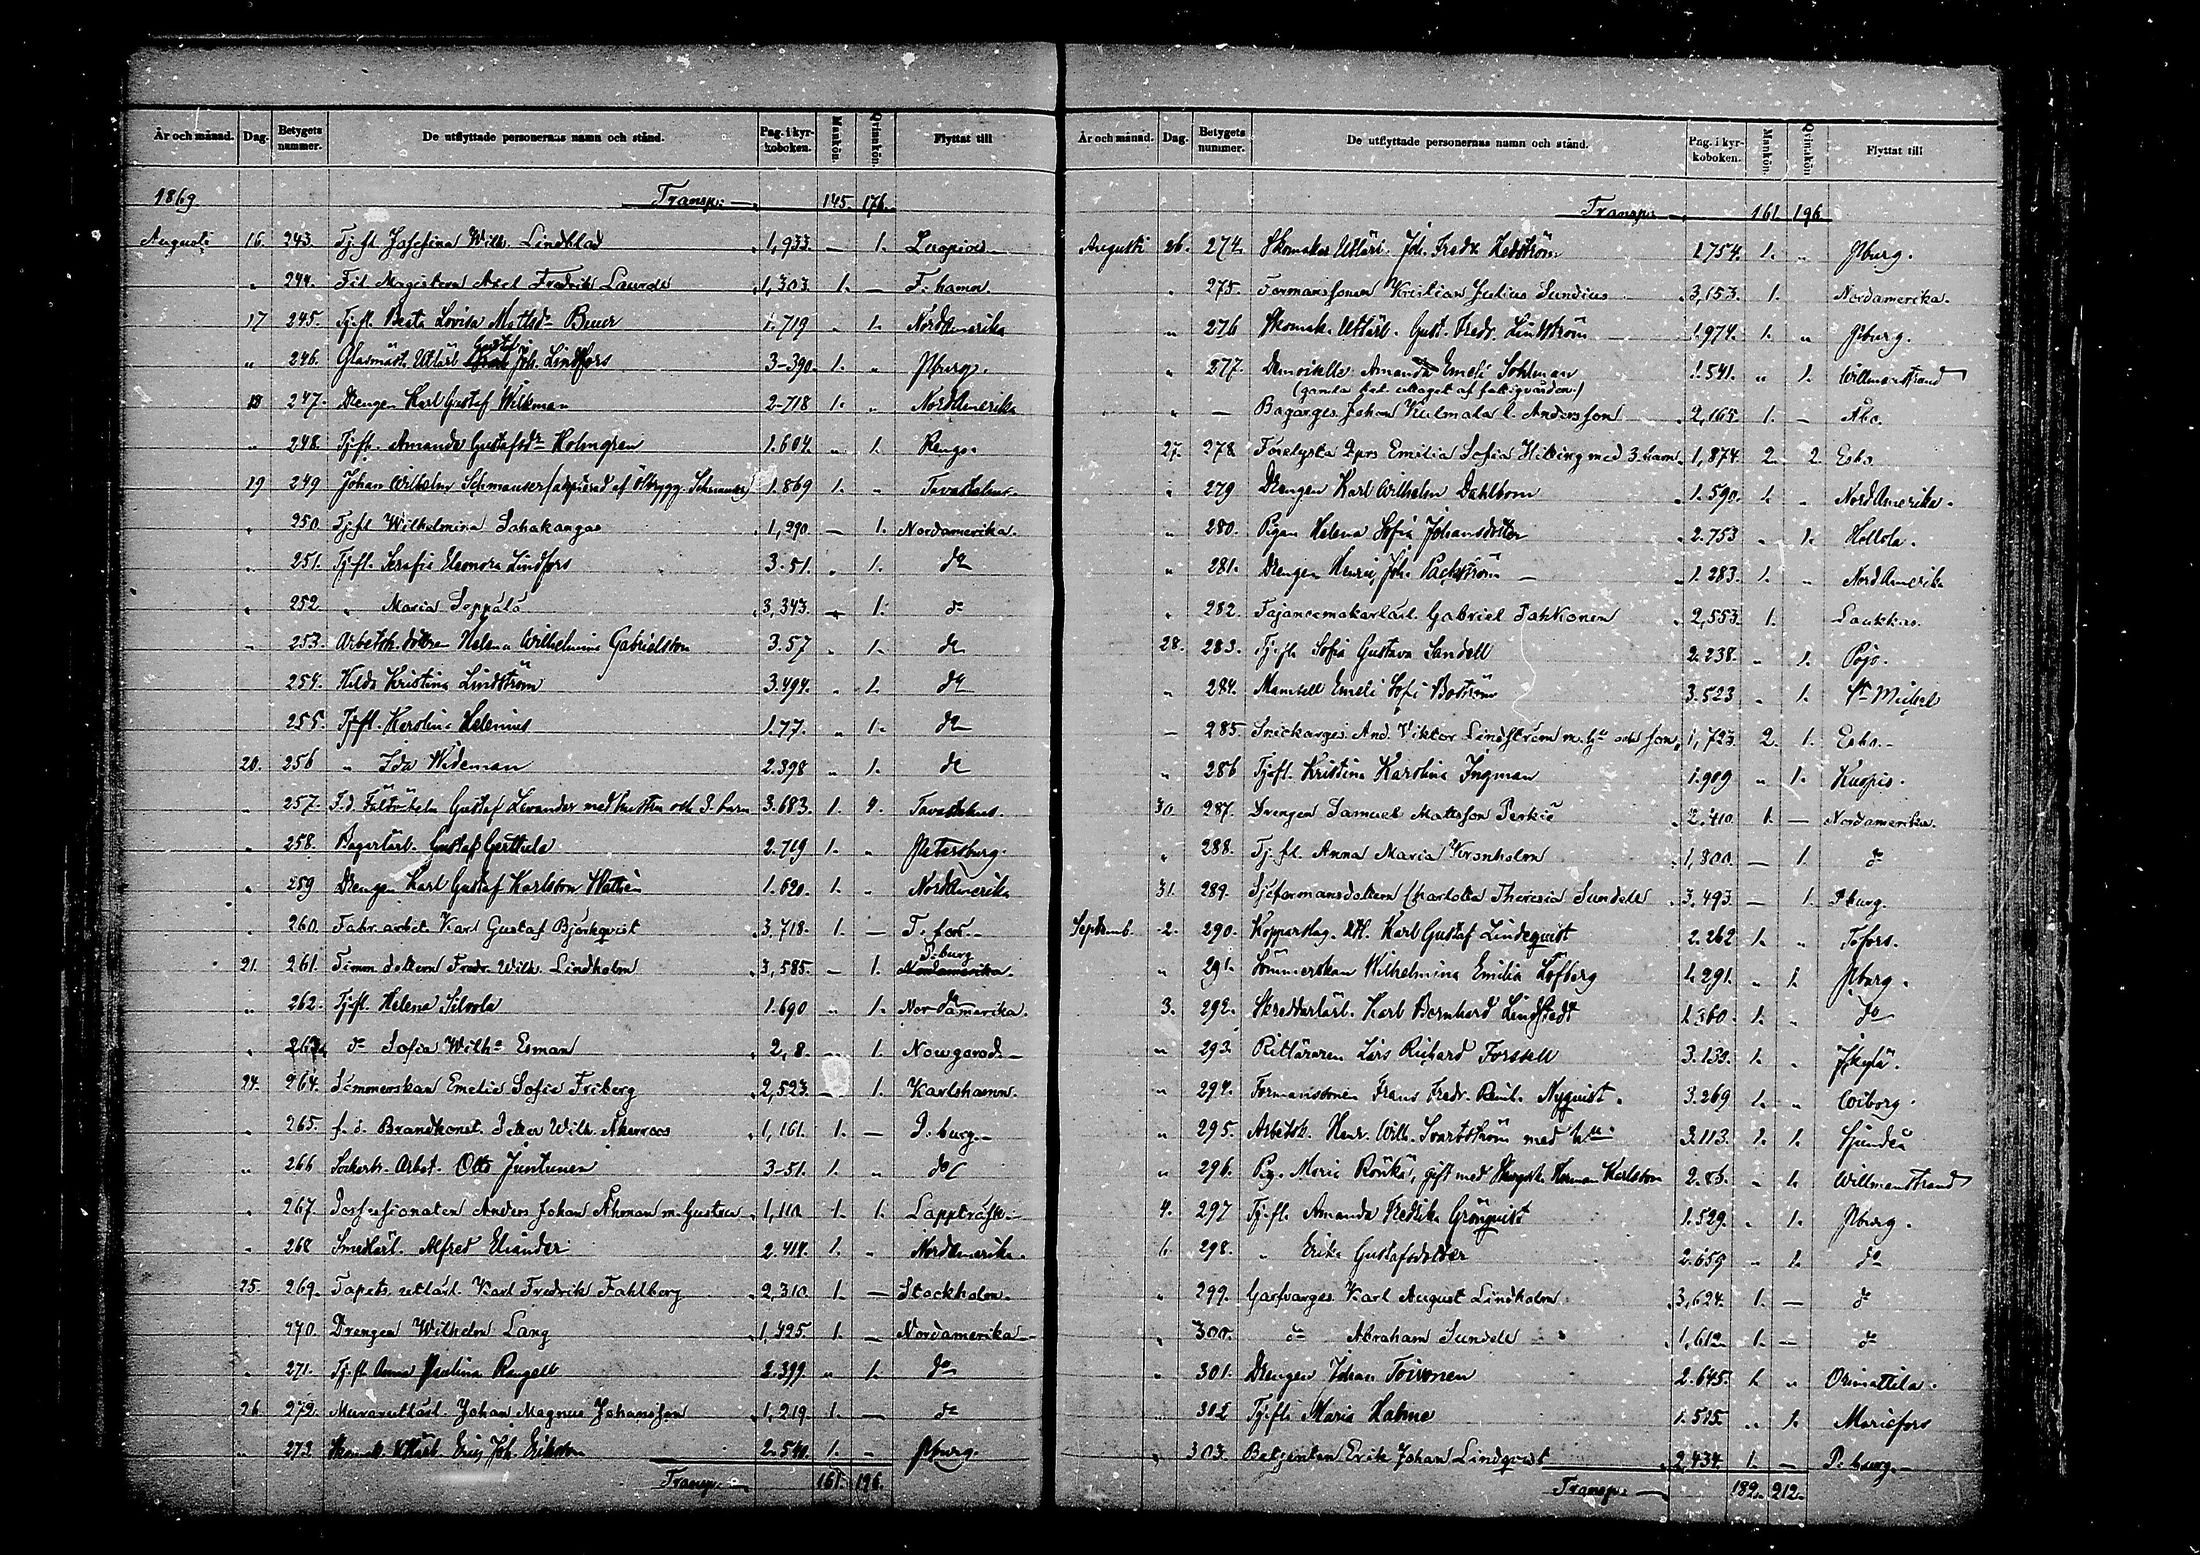 År och månad. Dag. Betygets nummer. De utflyttade personernas namn och stånd. Pag. i kyrkoboken. Mankön. Qvinnkön. Flyttat till
1869 Transp: 145. 176.
Augusti 16. 243. Tj. fl. Josefina Wilh. Lindblad 1,933. — 1.
" 244. Fil Magistern Axel Fredrik 1,303. 1. — F:hamn.
17 245. Tj.fl. Beata Lovisa Mattsdr 1.719 " 1. Nordamerika
" 246. Glasmäst. Utlärl Joh. Lindfors 3-390. 1. " Pburg.
18 247. Drengen Karl Gustaf Wikman 2-718 1. " NordAmerika
" 248. Tj.fl. Amanda Gustafsdr Holmgren 1.604. " 1. Rengo.
19 249 Johan Wilhelm Schmauser 1.869 1. " Tavastehus.
" 250. Tj.fl Wilhelmina Sahakangas 1,290 — 1. Nordamerika.
" 251. Tj.fl. Serafia Eleonora Lindfors 3.51. " 1. do
" 252 " Maria Seppälä 3,343. — 1. do
" 253. Arbetsk. dottren Helena Wilhelmina Gabrielsson 3.57 " 1. do
254. Hilda Kristina Lindström 3.494. " 1. do
255. Tj.fl. Karolina Helenius 1.77. " 1. do
20. 256 " Ida Wideman 2.398 " 1. do
" 257. Gustaf Levander med hustru och 3. barn 3.683. 1. 4. Tavastehus.
" 258. Bagarlärl. Gustaf Gerttula 2.719 1. " Petersburg.
" 259 Drengen Karl Gustaf Karlsson 1.620. 1. " NordAmerika
" 260. Fabr. arbet. Karl Gustaf Björkqvist 3,718. 1. — T:fors
21. 261. Timm. dottern Fredr. Wilh. Lindholm 3,585. — 1. P.burg Nordamerika.
" 262. Tj.fl. Helena Silvola 1.690 " 1. Nordamerika.
" 263. do Sofia Wilha Esman 2,8. 1. Nowgorod
24. 264. Sömmerskan Emelie Sofia Friberg 2,523. — 1. Karlshamn.
" 265. f. d. Brandkonst. Wilh. Åkerroos 1,161. 1. — P.burg.
" 266 Sockerbr. Arbet. Otto Juntunen 3-51. 1. " do
" 267. Possessionaten Anders Johan Åhman m. hustru 1,110. 1. 1. Lappträsk.
" 268 Smedlärl. Alfred Eliander 2.418. 1. " NordAmerika.
25. 269. Tapets. utlärl. Karl Fredrik Fahlberg 2,310. 1. — Stockholm.
270. Drengen Wilhelm Lang 1,425. 1. — Nordamerika
" 271. Tj.fl. Anna Paulina Rangell 2.399. " 1. do
26. 272. Murareutlärl. Johan Magnus Johansson 1,219. 1. — do
" 273. Utlärl. Joh. Eriksson 2.540. 1. — Pburg.
Transp: 161. 196.
År och månad. Dag. Betygets nummer. De utflyttade personernas namn och stånd. Pag. i kyrkoboken. Mankön. Qvinnkön. Flyttat till
Transp: 161 196
Augusti 26. 274. Skomakar Utlärl. Joh. Fredr. Hedström 1.754. 1. " Pburg.
" 275. Formanssonen Kristian Julius Sundius 3,153. 1. Nordamerika.
" 276 Skomak. Utlärl. Gust. Fredr. Lindström 1.974. 1. " Pburg.
" 277. Demoiselle Amanda Emeli Sohlman 1.541. " 1. Willmanstrand
" — Bagarges. Johan Andersson 2,165. 1. — Åbo.
27. 278 Emilia Sofia med 3. barn 1,874. 2. 2. Esbo.
" 279 Drengen Karl Wilhelm Dahlbom 1.590. 1. " NordAmerika.
" 280. Pigan Helena Sofia Johansdotter 2.753 " 1. Hollola.
" 281. Drengen Henric Joh. Packström 1.283. 1. " NordAmerika
" 282. Fajancemakarlärl. Gabriel Pahkonen 2,553. 1.
28. 283. Tj.fl. Sofia Gustava Sandell 2.238. " 1. Pojo.
" 284. Mamsell Emeli Sofi Boström 3.523 " 1. St Michel
— 285 Snickarges. And. Viktor Lindström m. hu och son 1,723. 2. 1. Esbo.
" 286 Tj.fl. Kristina Karolina Ingman 1.909 " 1. Kuopio.
30. 287. Drengen Samuel Mattsson 2,410. 1. — Nordamerika.
" 288. Tj.fl. Anna Maria Kronholm 1,800. — 1. do
31. 289. Charlotta Theresia Sundell 3,493. — 1. Pburg.
Septemb. 2. 290. Kopparslag. Utl. Karl Gustaf Lindeqvist 2.262 1. " T:fors.
" 291. Sömmerskan Wilhelmina Emilia Löfberg 1.291. " 1. Pburg.
3. 292. Skreddarlärl. Karl Bernhard Lindstedt 1.360. 1. " do
" 293. Ritläraren Lars Richard Forssell 3.139. 1. "
" 294. Formanssonen Frans Fredr. Nyqvist. 3.269 1. " Wiborg.
" 295. Arbetsk. Henr. Wilh. Svartström med hu 3.113. 1. 1. Sjundeå
" 296. Pig. Maria Rönkä, gift med Herman Karlsson 2.86. " 1. Willmanstrand
4. 297 Tj.fl. Amanda Fredrika Grönqvist 1.529. " 1. Pburg.
6 298. " Erika Gustafsdotter 2.659 " 1. do
" 299. Garfvarges. Karl August Lindholm 3,624. 1. — do
" 300. do Abraham Sundell 1,612. 1. — do
" 301. Drengen Johan Toivonen 2.645. 1. " Orimattila.
" 302 Tj.fl. Maria Halme 1.515. " 1. Mariefors
" 303 Betjenten Erik Johan Lindqvist 2,434. 1. — P.burg.
Transp: 182. 212.